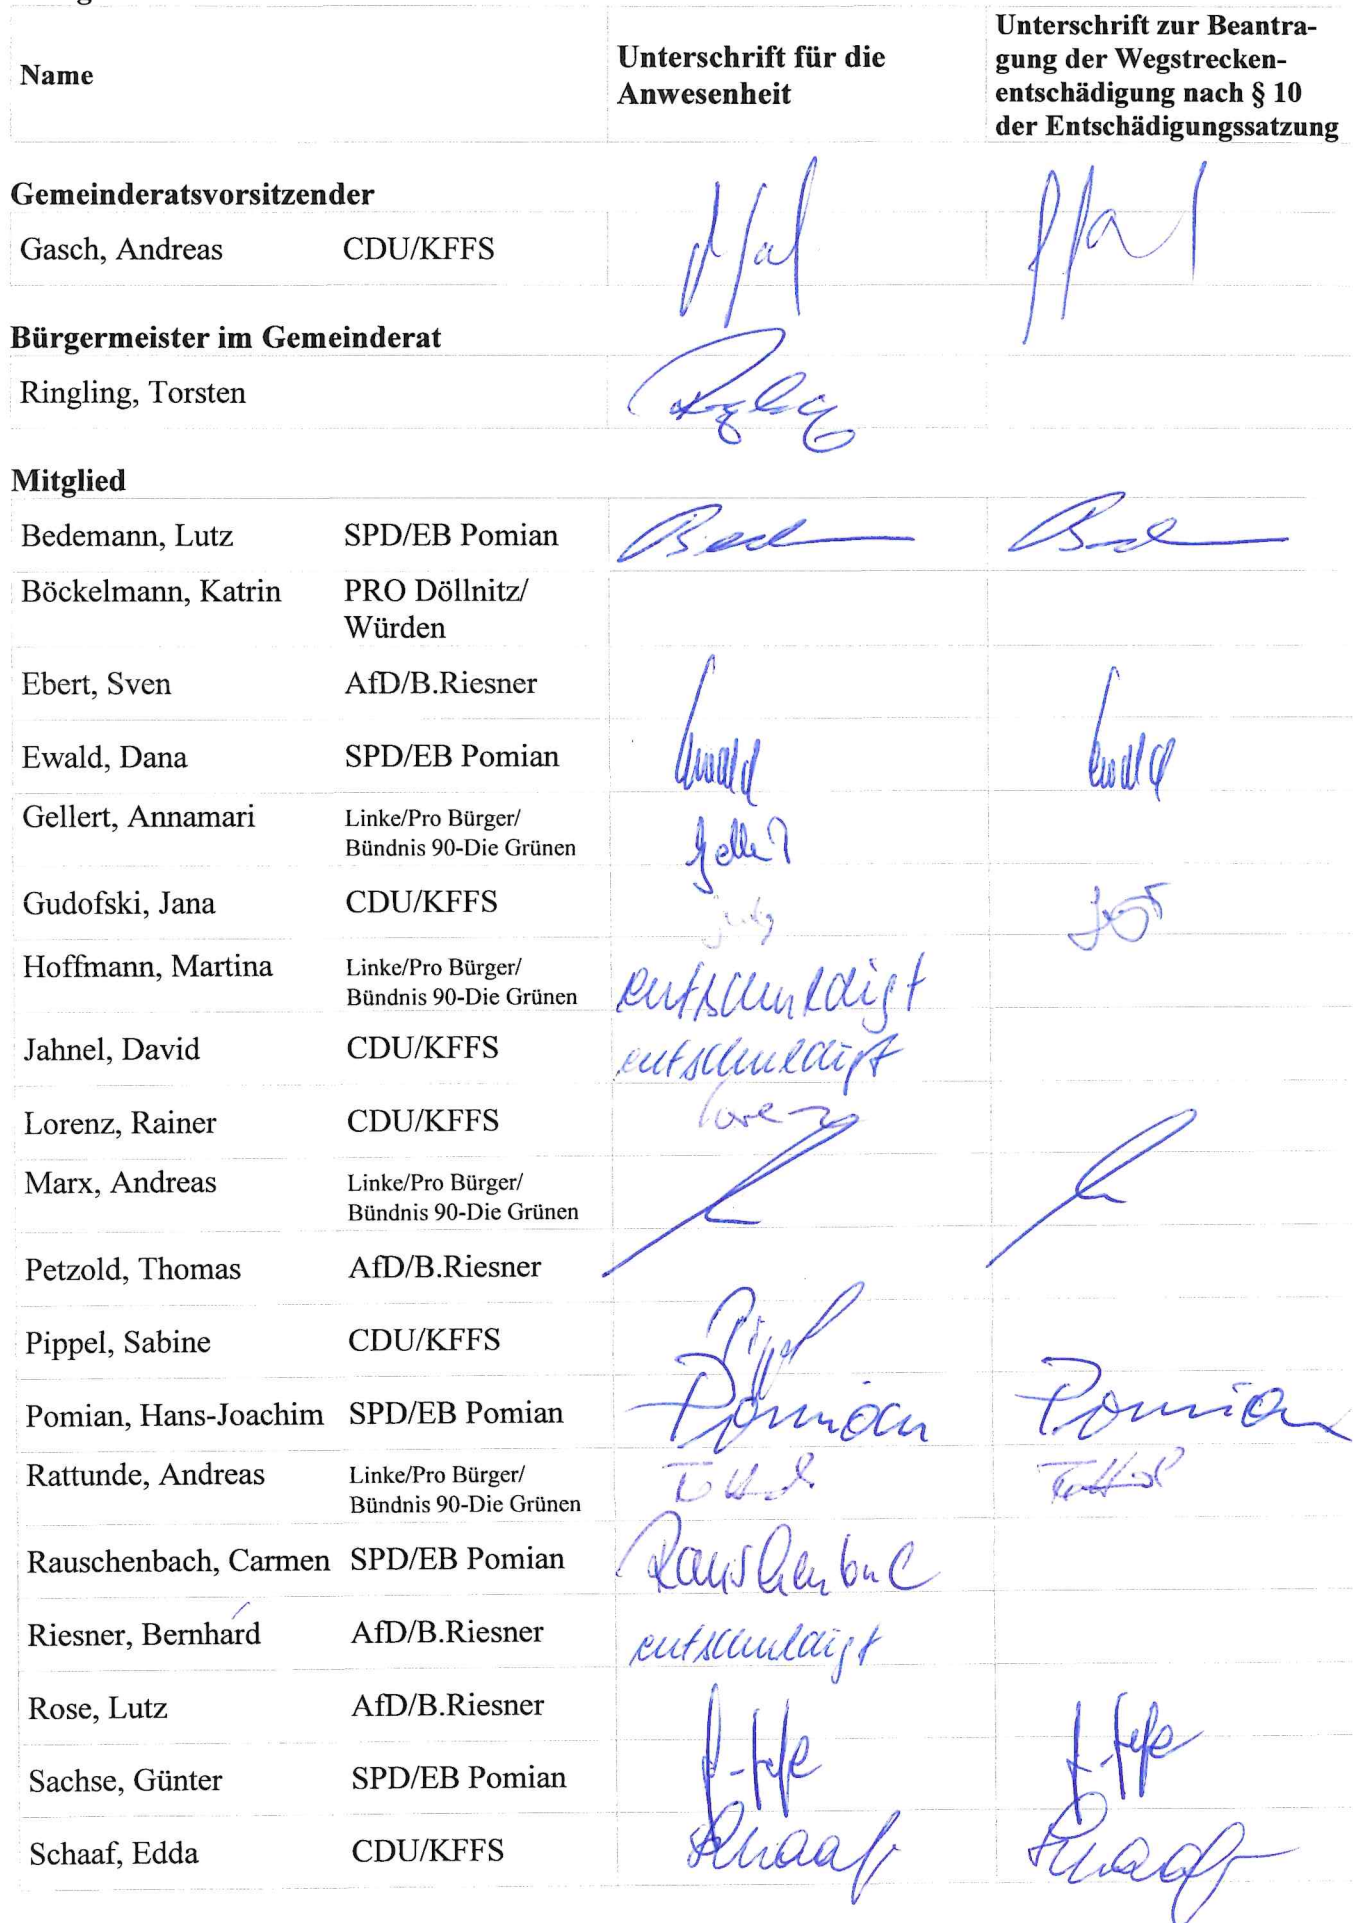 Name
Unterschrift für die
Anwesenheit
Unterschrift zur Beantra-
gung der Wegstrecken-
entschädigung nach § 10
der Entschädigungssatzung
Gemeinderatsvorsitzender
Gasch, Andreas CDU/KFFS
Bürgermeister im Gemeinderat
Ringling, Torsten
Mitglied
Bedemann, Lutz SPD/EB Pomian
Böckelmann, Katrin PRO Döllnitz/
Würden
Ebert, Sven AfD/B.Riesner
Ewald, Dana SPD/EB Pomian Ewald Ewald
Gellert, Annamari Linke/Pro Bürger/
Bündnis 90-Die Grünen
Gudofski, Jana CDU/KFFS
Hoffmann, Martina Linke/Pro Bürger/
Bündnis 90-Die Grünen entschuldigt
Jahnel, David CDU/KFFS entschuldigt
Lorenz, Rainer CDU/KFFS Lorenz
Marx, Andreas Linke/Pro Bürger/
Bündnis 90-Die Grünen
Petzold, Thomas AfD/B.Riesner
Pippel, Sabine CDU/KFFS Pippel
Pomian, Hans-Joachim SPD/EB Pomian Pomian Pomian
Rattunde, Andreas Linke/Pro Bürger/
Bündnis 90-Die Grünen
Rauschenbach, Carmen SPD/EB Pomian Rauschenbach
Riesner, Bernhard AfD/B.Riesner entschuldigt
Rose, Lutz AfD/B.Riesner
Sachse, Günter SPD/EB Pomian
Schaaf, Edda CDU/KFFS Schaaf Schaaf